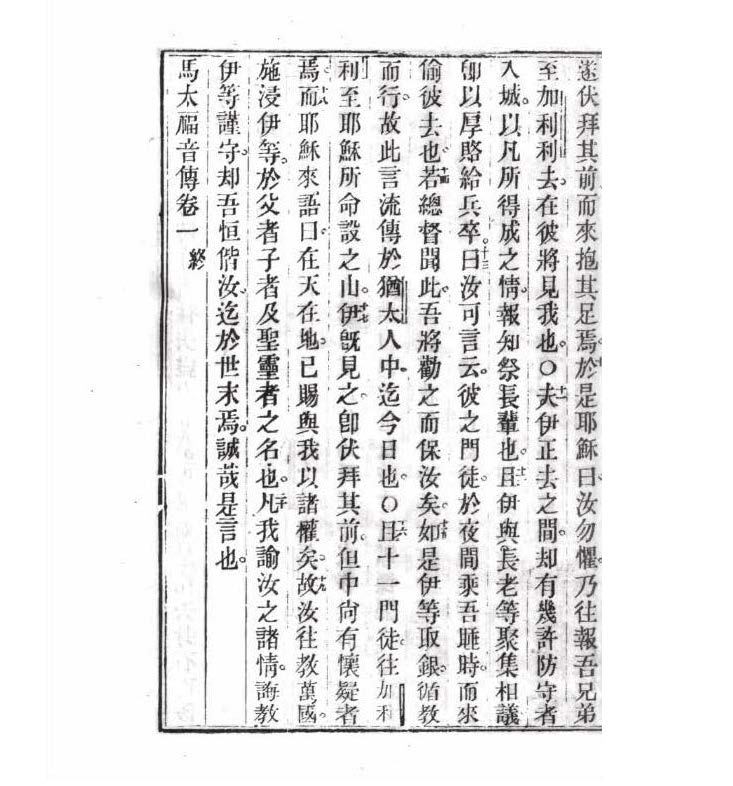 遂伏拜其前而來抱其足焉。於是耶穌曰。汝勿懼。乃往報吾兄弟
至加利利去。在彼將見我也。○十一夫伊正去之間。却有幾許防守者
入城。以凡所得成之情。報知祭長輩也。十二且伊與長老等聚集相議
卽以厚賂給兵卒。十三曰汝可言云。彼之門徒。於夜間乘吾睡時。而來
偷彼去也。十四若總督聞此。吾將勸之而保汝矣。十五如是伊等取銀。循教
而行。故此言流傳於猶太人中。迄今日也。○十六且十一門徒。往加利
利至耶穌所命設之山。十七伊旣見之。卽伏拜其前。但中尙有懷疑者
焉。十八而耶穌來語曰。在天在地。已賜與我以諸權矣。十九故汝往教萬國。
施浸伊等。於父者子者及聖靈者之名也。二十凡我諭汝之諸情。誨教
伊等謹守。却吾恒偕汝。迄於世末焉。誠哉是言也。
馬太福音傳卷一 終